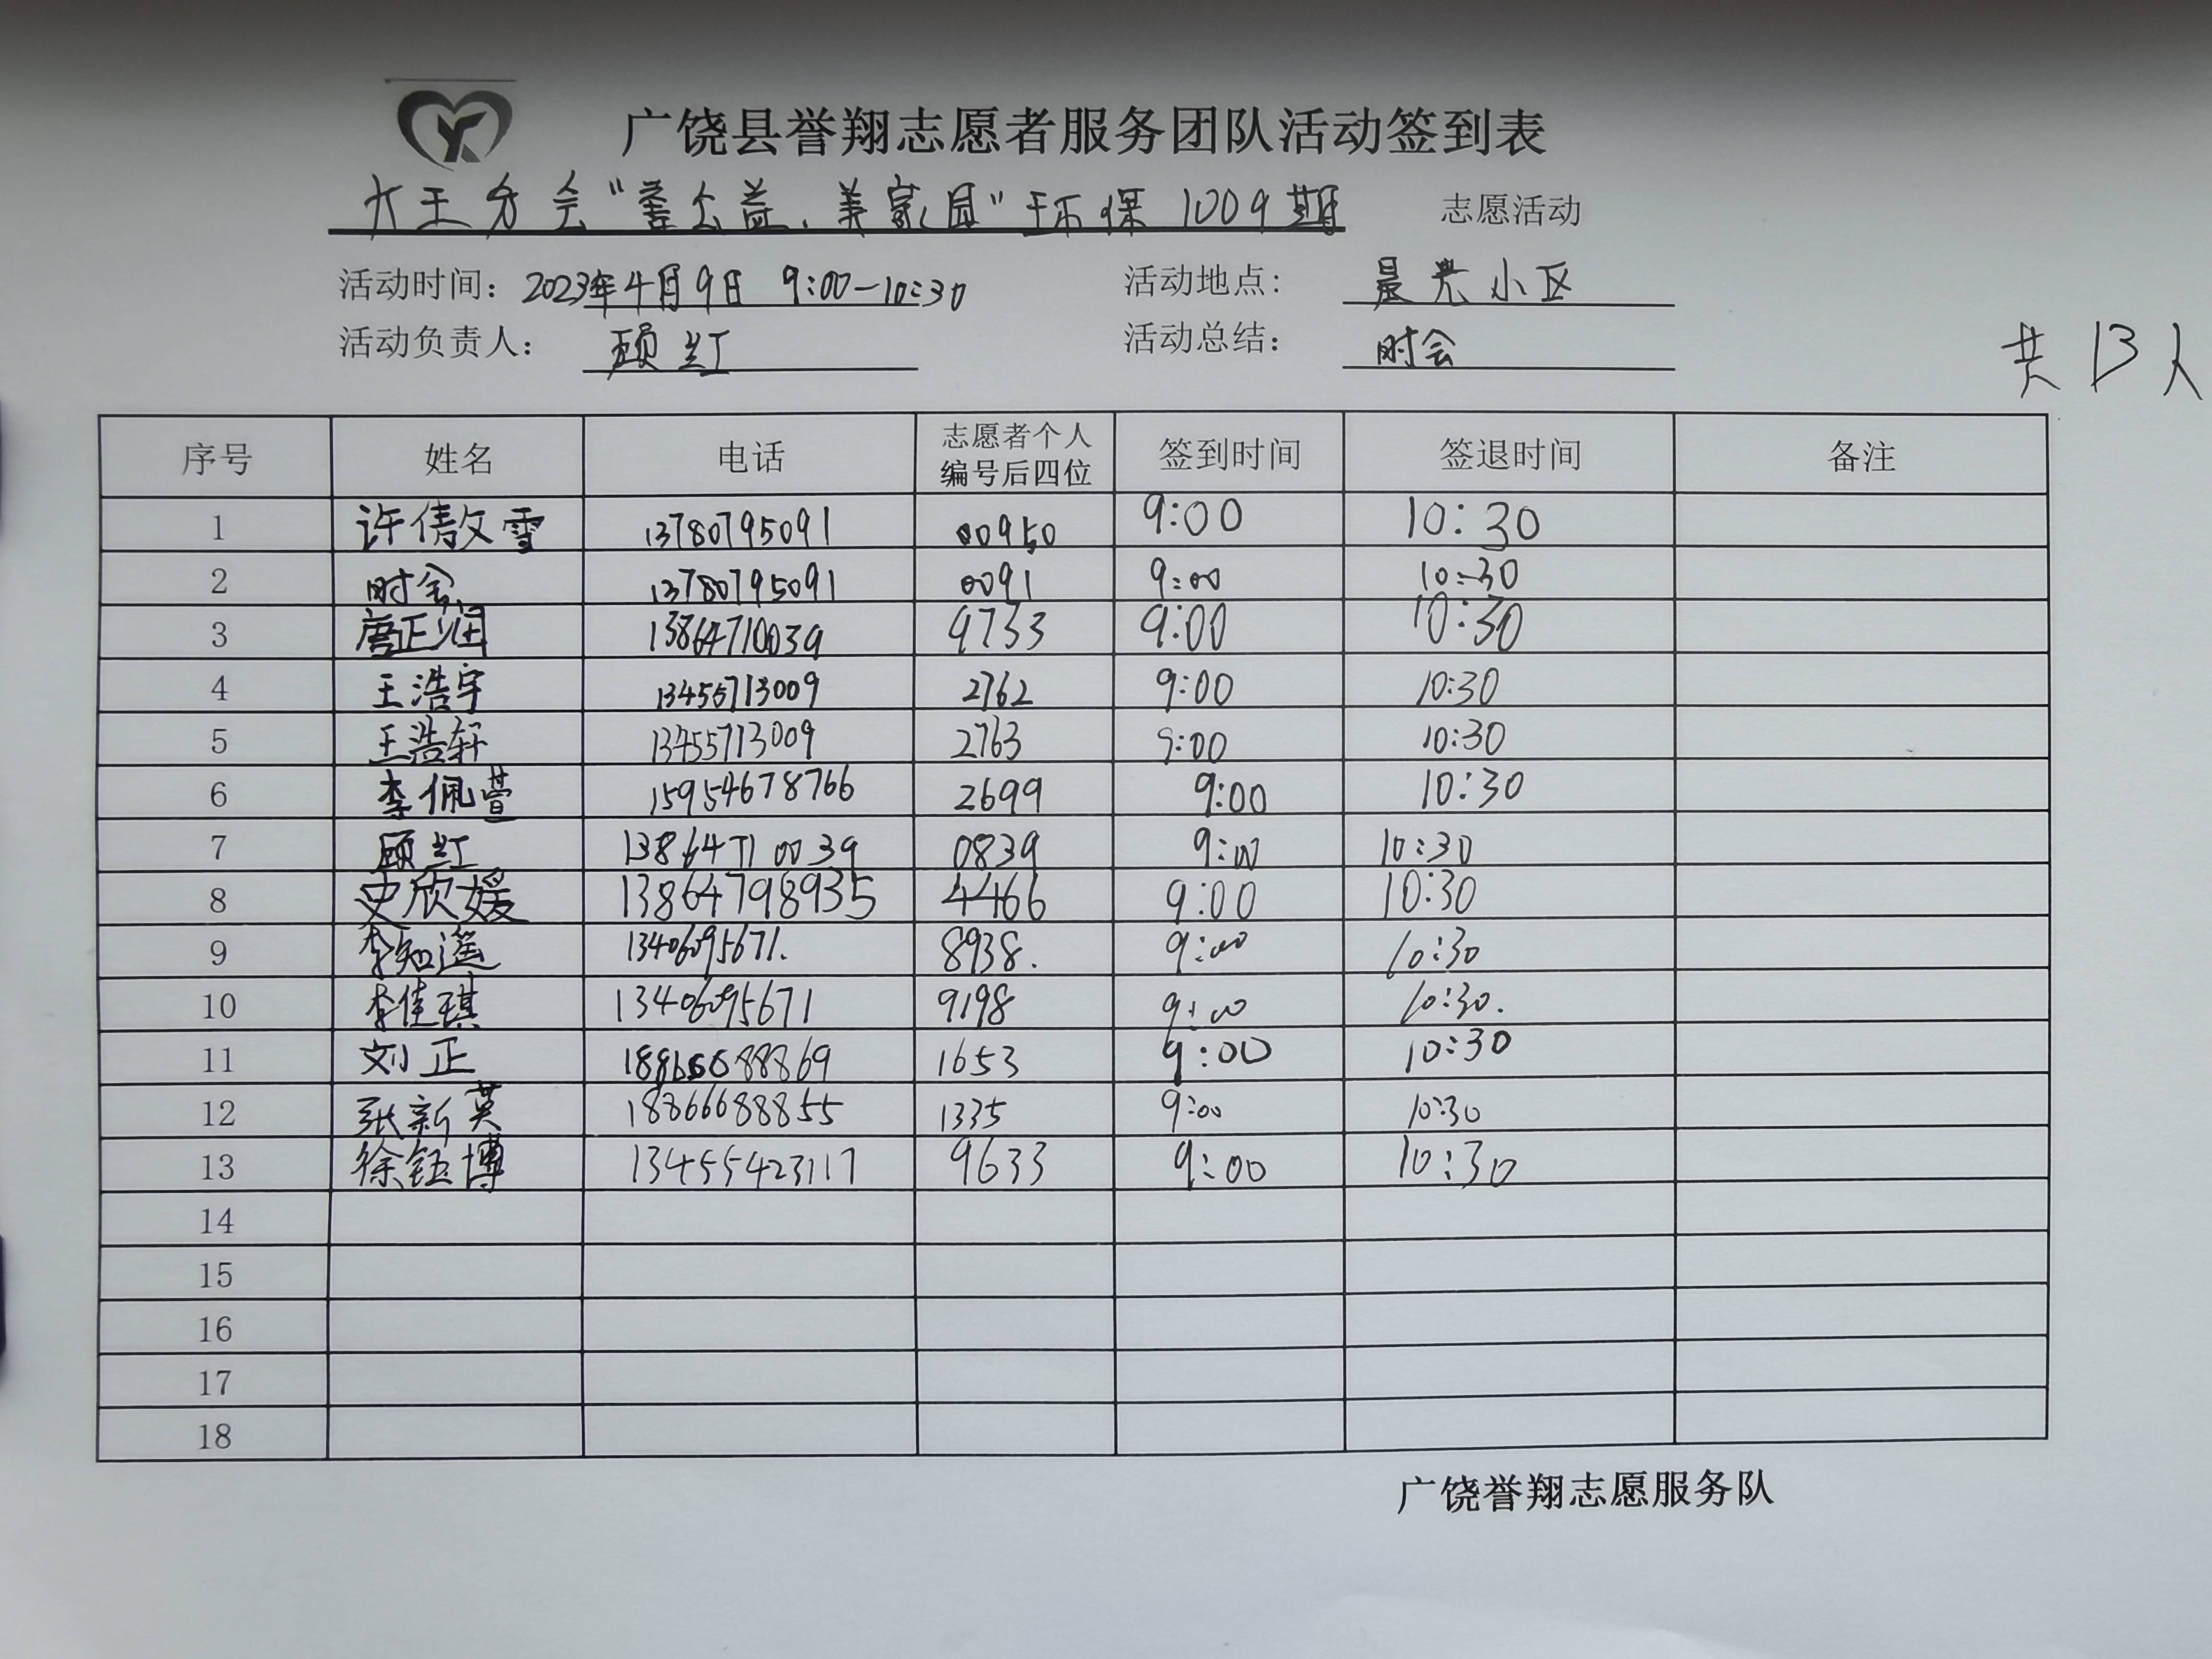 广饶县誉翔志愿者服务团队活动签到表
大王分会“善公益、美家园”环保1009期 志愿活动
活动时间：2023年4月9日 9:00—10:30 活动地点： 晨光小区
活动负责人： 顾红 活动总结： 时会
共13人
序号 姓名 电话 志愿者个人编号后四位 签到时间 签退时间 备注
1 许倩文雪 13780795091 00950 9:00 10:30
2 时会 13780795091 0091 9:00 10:30
3 唐正润 13864710039 9733 9:00 10:30
4 王浩宇 13455713009 2762 9:00 10:30
5 王浩轩 13455713009 2763 9:00 10:30
6 李佩萱 15954678766 2699 9:00 10:30
7 顾红 13864710039 0839 9:00 10:30
8 史欣媛 13864798935 4466 9:00 10:30
9 李知遥 13406095671. 8938. 9:00 10:30
10 李佳琪 13406095671 9198 9:00 10:30.
11 刘正 18866688869 1653 9:00 10:30
12 张新英 18866688855 1335 9:00 10:30
13 徐钰博 13455423117 9633 9:00 10:30
14
15
16
17
18
广饶誉翔志愿服务队